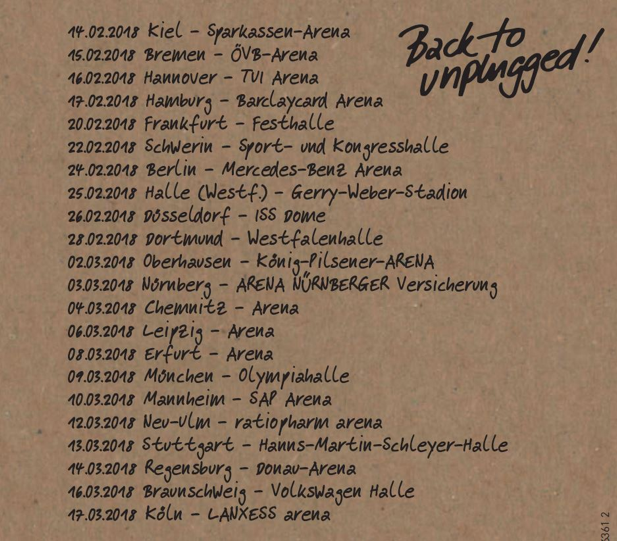 14.02.2018 Kiel – Sparkassen-Arena
15.02.2018 Bremen – ÖVB-Arena
16.02.2018 Hannover – TUI Arena
17.02.2018 Hamburg – Barclaycard Arena
20.02.2018 Frankfurt – Festhalle
22.02.2018 Schwerin – Sport- und Kongresshalle
24.02.2018 Berlin – Mercedes-Benz Arena
25.02.2018 Halle (Westf.) – Gerry-Weber-Stadion
26.02.2018 Düsseldorf – ISS Dome
28.02.2018 Dortmund – Westfalenhalle
02.03.2018 Oberhausen – König-Pilsener-ARENA
03.03.2018 Nürnberg – ARENA NÜRNBERGER Versicherung
04.03.2018 Chemnitz – Arena
06.03.2018 Leipzig – Arena
08.03.2018 Erfurt – Arena
09.03.2018 München – Olympiahalle
10.03.2018 Mannheim – SAP Arena
12.03.2018 Neu-Ulm – ratiopharm arena
13.03.2018 Stuttgart – Hanns-Martin-Schleyer-Halle
14.03.2018 Regensburg – Donau-Arena
16.03.2018 Braunschweig – Volkswagen Halle
17.03.2018 Köln – LANXESS arena
Back to
unplugged!
5361 2